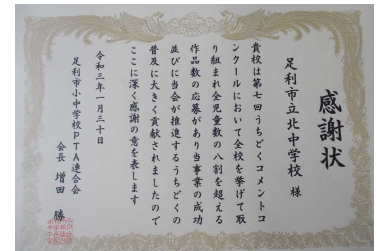 感謝状
足利市立北中学校 様
貴校は第七回うちどくコメントコ
ンクールにおいて全校を挙げて取
り組まれ全児童数の八割を超える
作品数の応募があり当事業の成功
並びに当会が推進するうちどくの
普及に大きく貢献されましたので
ここに深く感謝の意を表します
令和三年一月三十日
足利市小中学校PTA連合会
会長 増田 勝